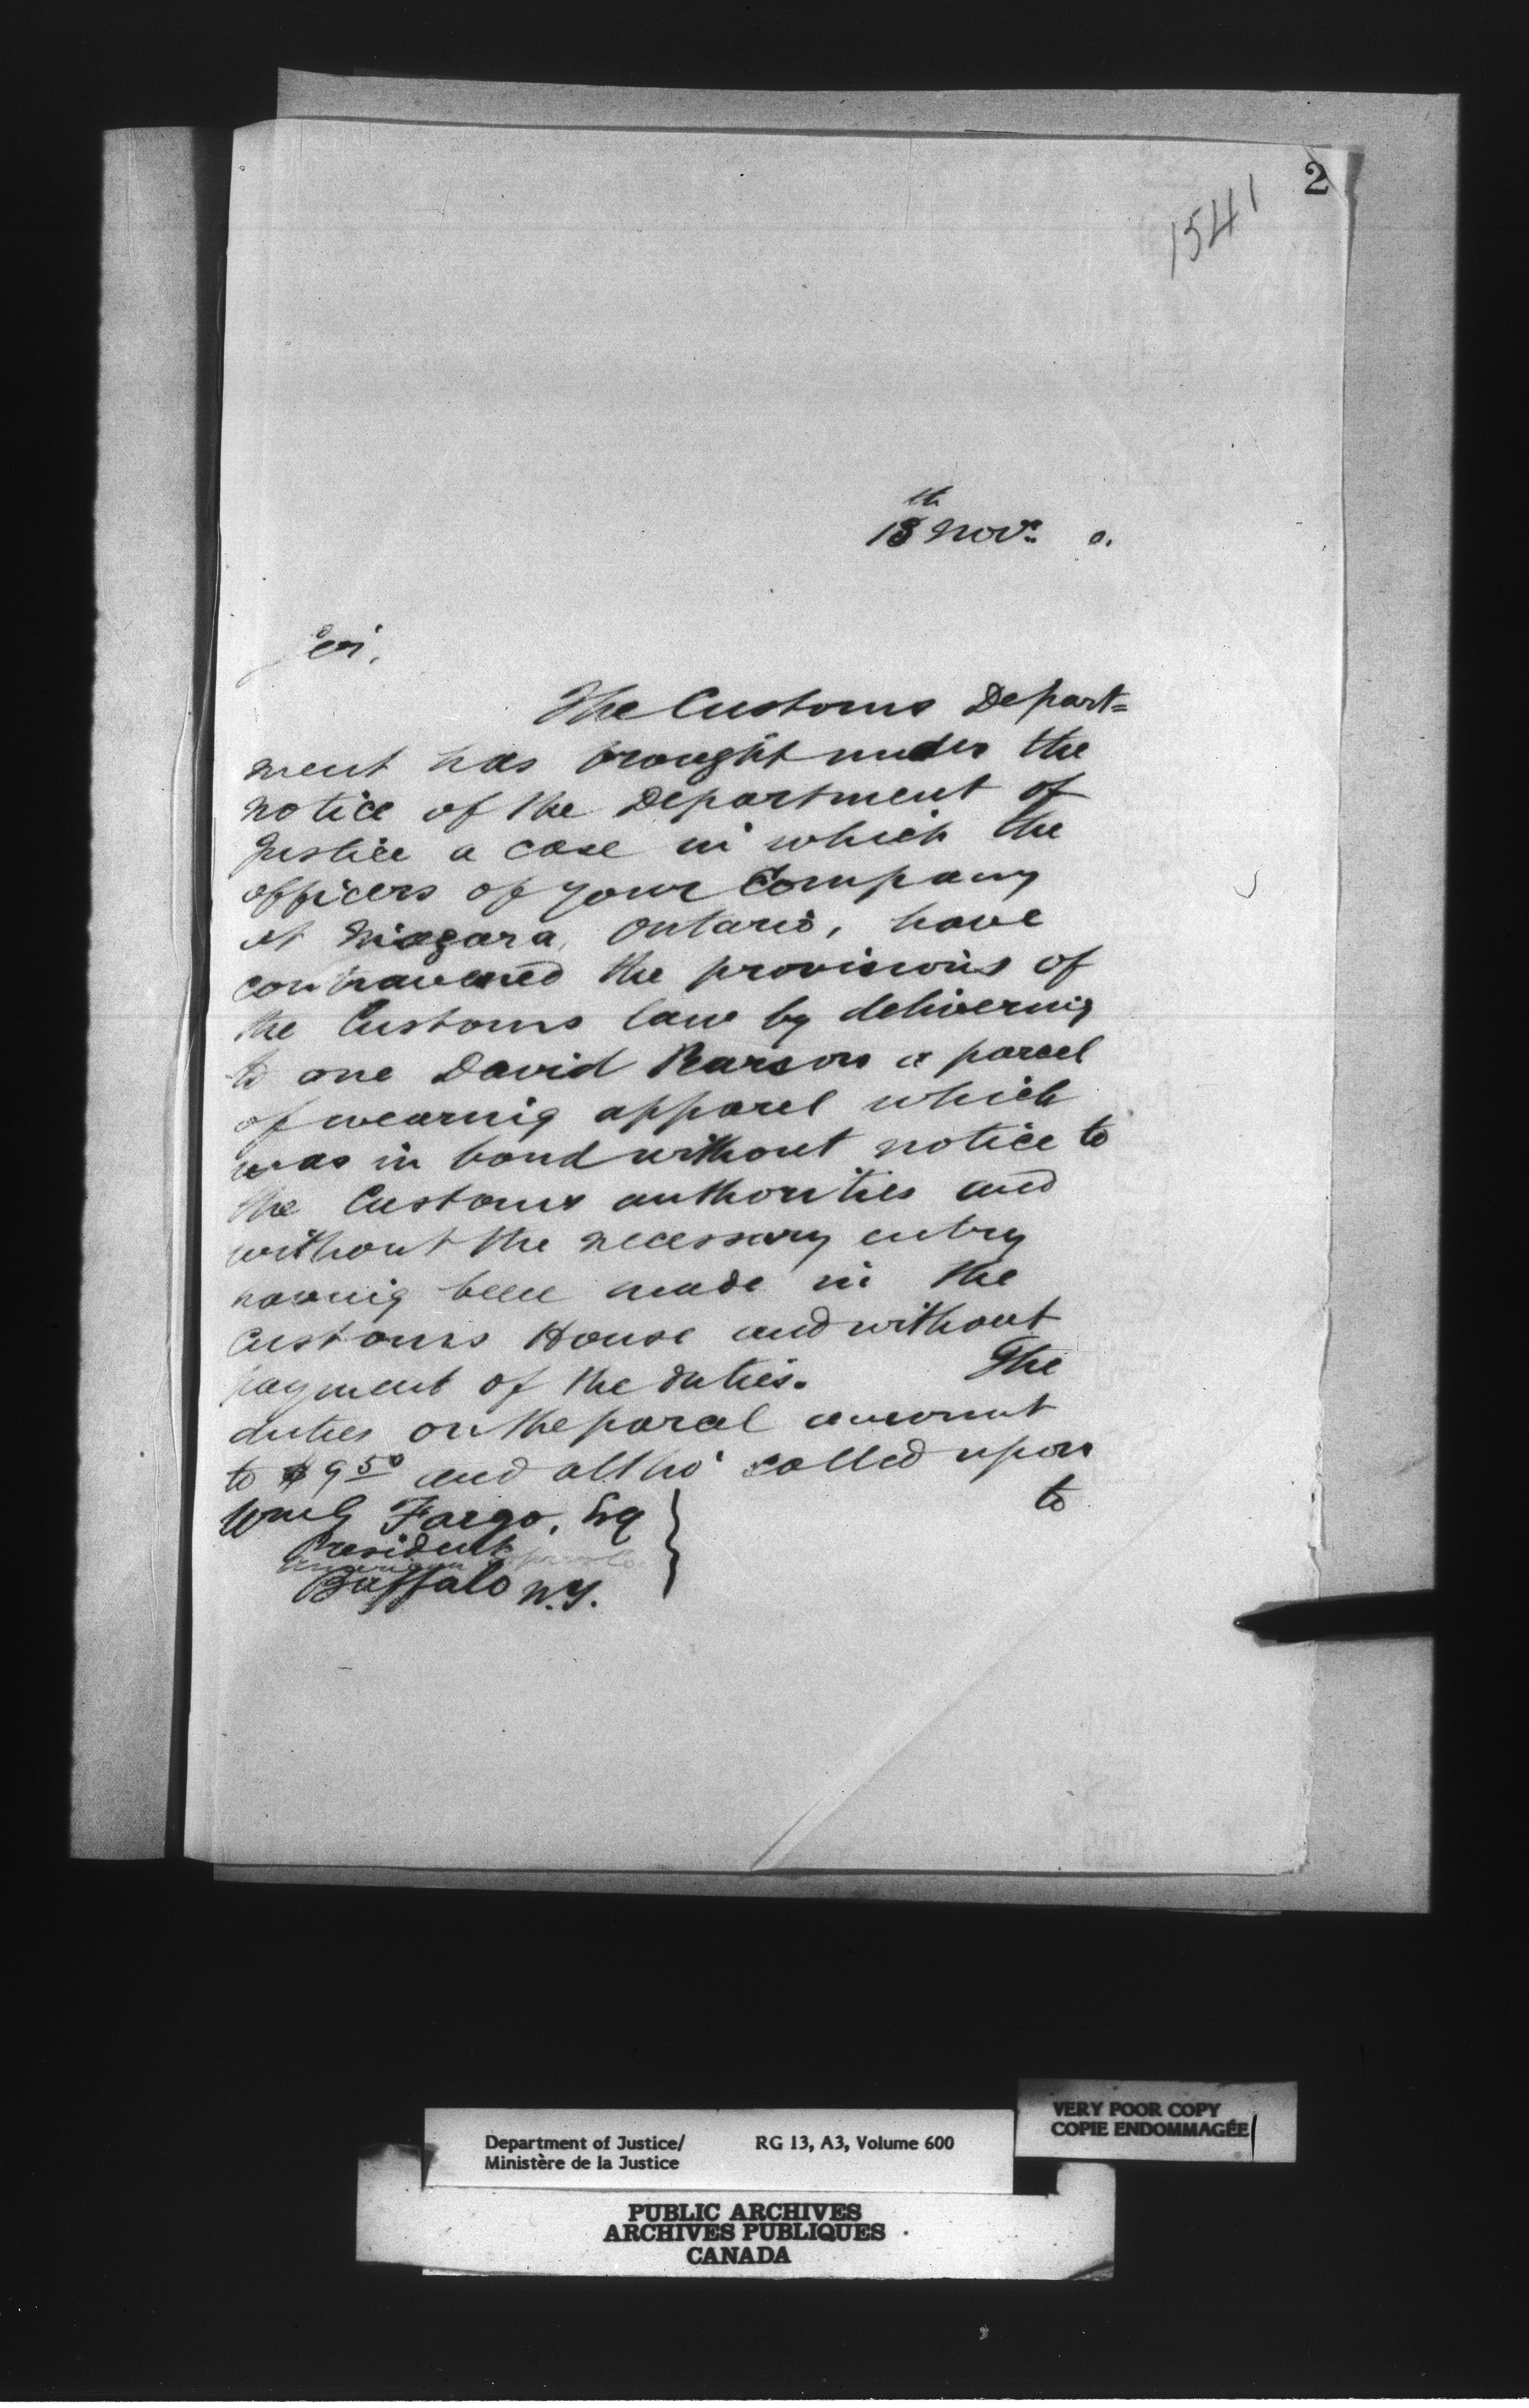 2
1541
18th Novr. 0.
Sir,
The Customs Depart=
ment has brought under the
notice of the Department of
Justice a case in which the
officers of your Company
at Niagara, Ontario, have
contravened the provisions of
the Customs law by delivering
to one David Pearson a parcel
of wearing apparel which
was in bond without notice to
the Customs authorities and
without the necessary entry
having been made in the
Customs House and without
payment of the duties. The
duties on the parcel amount
to $9.50 and altho' called upon
to
Wm G Fargo, Esq
President
American Express Co
Buffalo N.Y.
VERY POOR COPY
COPIE ENDOMMAGÉE
Department of Justice/ RG 13, A3, Volume 600
Ministère de la Justice
PUBLIC ARCHIVES
ARCHIVES PUBLIQUES
CANADA